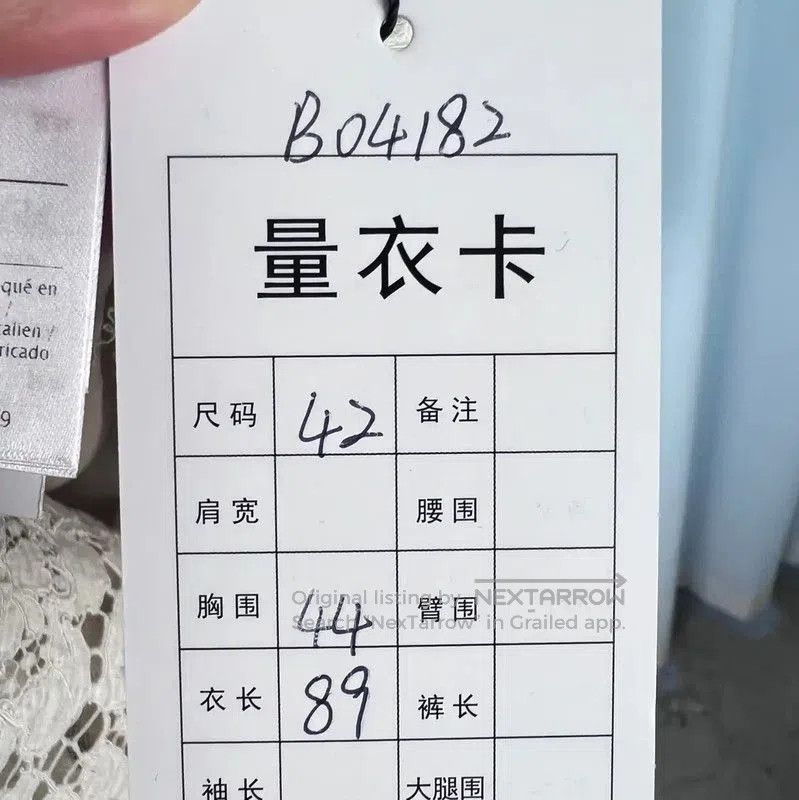 B04182
量衣卡
尺码 42 备注
肩宽 腰围
胸围 44 臂围
衣长 89 裤长
袖长 大腿围
qué en
/
alien /
ricado
9
Original listing by NEXTARROW
Search "NexTarrow" in Grailed app.